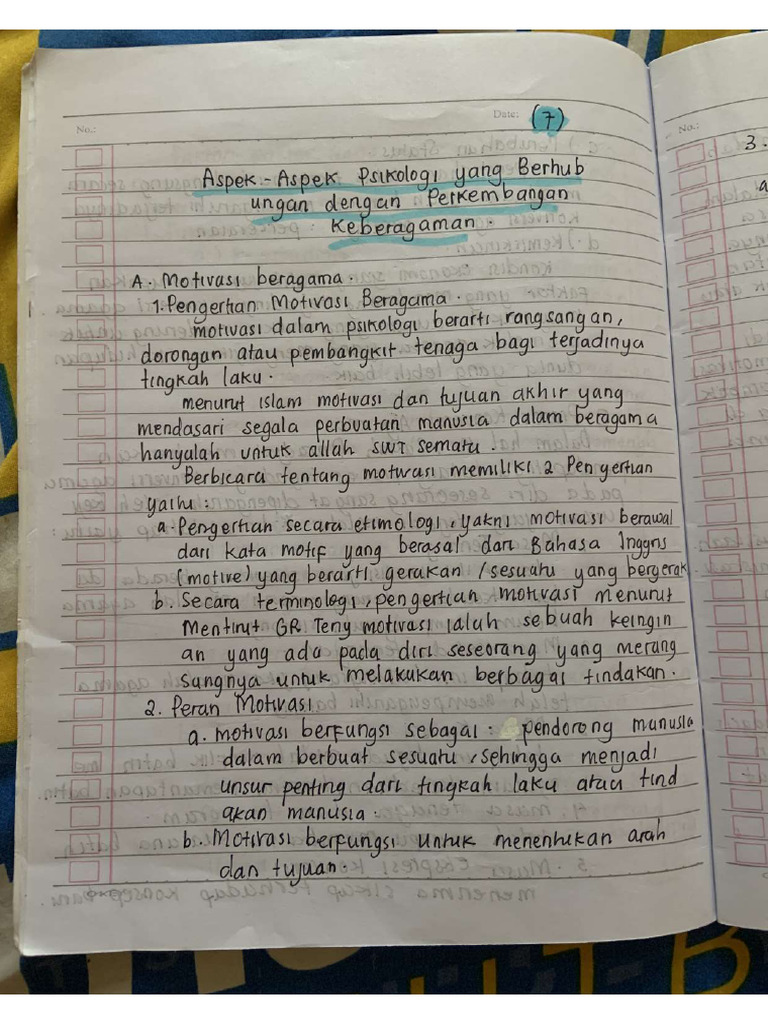 No.:
Date: (7)
Aspek-Aspek Psikologi yang Berhub
ungan dengan Perkembangan
Keberagaman.
A. Motivasi beragama.
1. Pengertian Motivasi Beragama.
motivasi dalam psikologi berarti rangsangan,
dorongan atau pembangkit tenaga bagi terjadinya
tingkah laku.
menurut islam motivasi dan tujuan akhir yang
mendasari segala perbuatan manusia dalam beragama
hanyalah untuk allah SWT sematu.
Berbicara tentang motivasi memiliki 2 Pengertian
yaitu:
a. Pengertian secara etimologi, yakni motivasi berawal
dari kata motif yang berasal dari Bahasa Inggris
(motive) yang berarti gerakan / sesuatu yang bergerak
b. Secara terminologi, pengertian motivasi menurut
Mentirut GR Teny motivasi ialah sebuah keingin
an yang ada pada diri seseorang yang merang
sangnya untuk melakukan berbagai tindakan.
2. Peran Motivasi
a. motivasi berfungsi sebagai : pendorong manusia
dalam berbuat sesuatu, sehingga menjadi
unsur penting dari tingkah laku atau tind
akan manusia.
b. Motivasi berfungsi untuk menentukan arah
dan tujuan.
No.:
3.
a